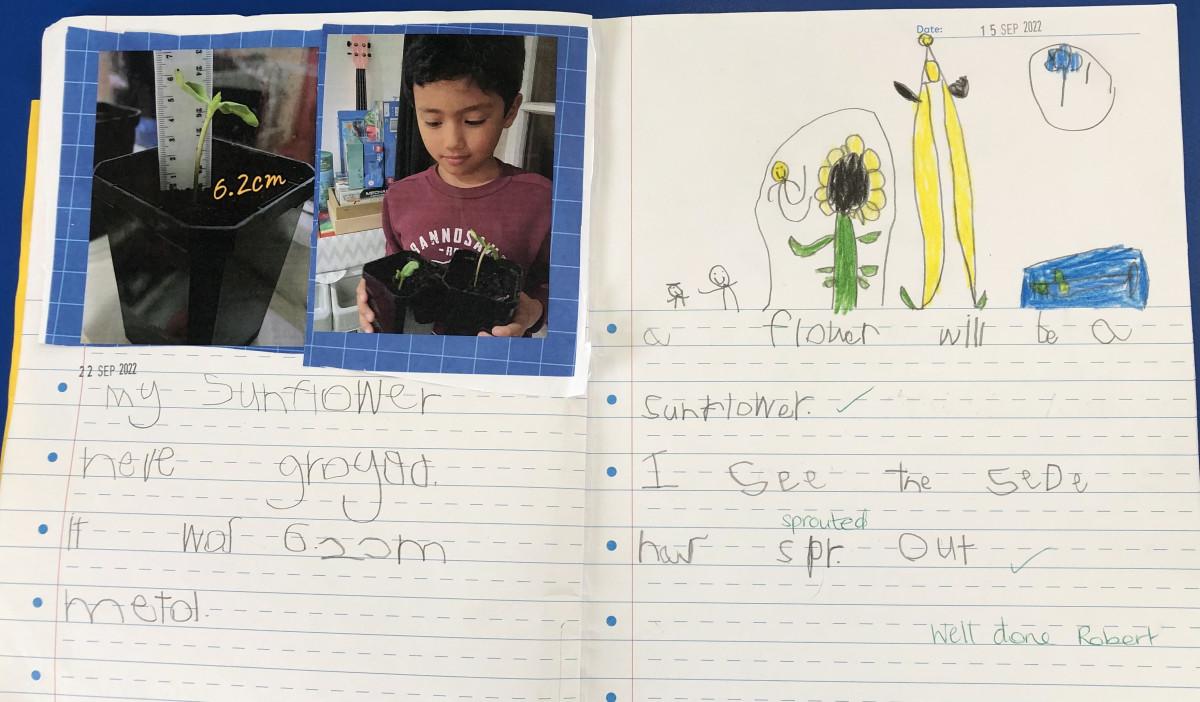 6.2cm
22 SEP 2022
my Sunflower
heve groyad.
it was 6.22m
metol.
Date: 15 SEP 2022
a flower will be a
sunflower.
I See the SeDe
has spr. Out
sprouted
Well done Robert